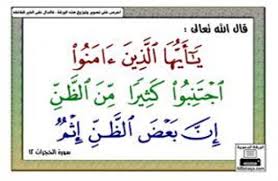 احرص على تصوير وتوزيع هذه الورقة ، فالدال على الخير كفاعله
قال الله تعالى :
يَٰٓأَيُّهَا ٱلَّذِينَ ءَامَنُوا۟
ٱجْتَنِبُوا۟ كَثِيرًا مِّنَ ٱلظَّنِّ
إِنَّ بَعْضَ ٱلظَّنِّ إِثْمٌ
سورة الحجرات ١٢